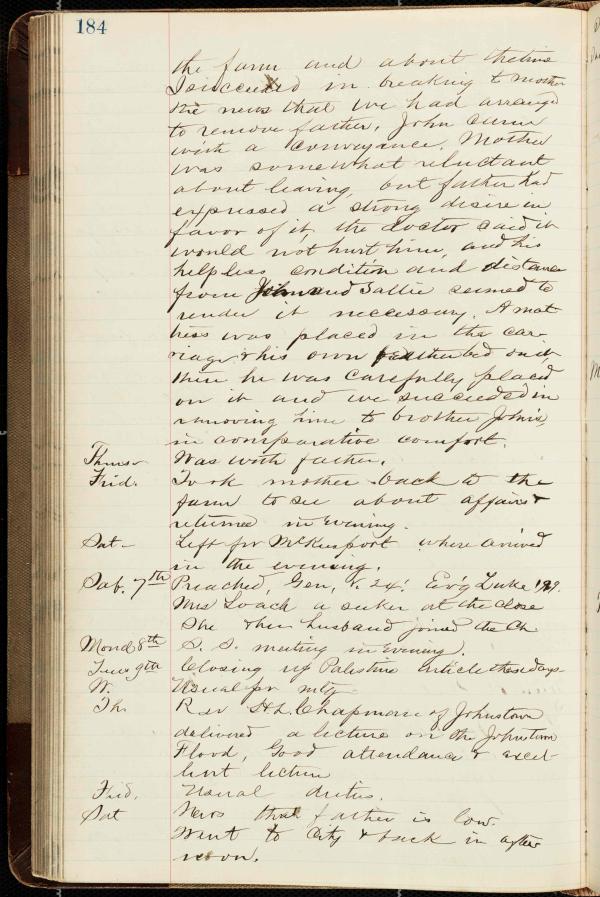 184
the farm and about the time
I succeeded in breaking to mother
the news that we had arranged
to remove father, John came
with a conveyance. Mother
was somewhat reluctant
about leaving, but father had
expressed a strong desire in
favor of it, the doctor said it
would not hurt him, and his
helpless condition and distance
from John and Sallie seemed to
render it necessary. A mat
tress was placed in the car-
riage & his own feather bed on it
then he was carefully placed
on it and we succeeded in
removing him to brother John's,
in comparative comfort.
Thurs Was with father.
Frid. Took mother back to the
farm to see about affairs &
returned in Evening.
Sat- Left for McKeesport where arrived
in the evening.
Sab. 7th Preached, Gen, 5. 24. Ev'g Luke
Mrs Loach a seeker at the close
She & her husband joined the Ch.
Mond 8th S. S. meeting in Evening.
Tues 9th Closing up Palestine article these days
W. Usual pr mtg
Th. Rev H. L. Chapman of Johnstown
delivered a lecture on the Johnstown
Flood, Good attendance & excel-
lent lecture
Frid. Usual duties.
Sat News that father is low.
Went to City & back in after
noon.